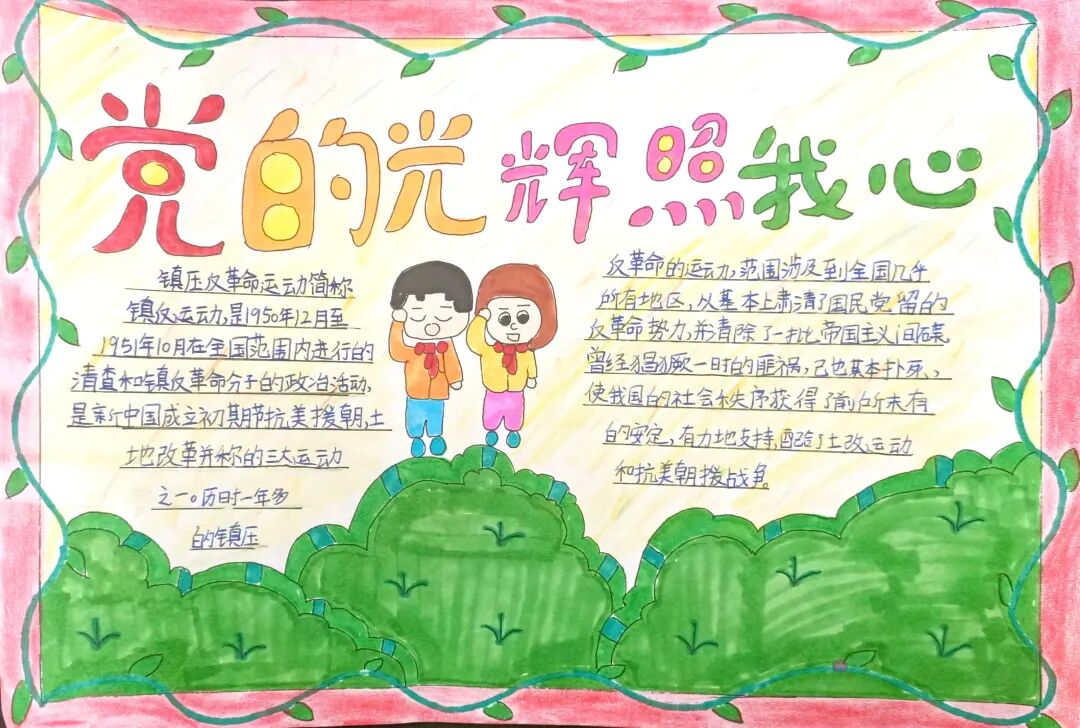 党的光辉照我心
镇压反革命运动简称
镇反运动,是1950年12月至
1951年10月在全国范围内进行的
清查和镇反革命分子的政治活动,
是新中国成立初期节抗美援朝,土
地改革并称的三大运动
之一。历时一年多
的镇压
反革命的运动,范围涉及到全国几乎
所有地区,从基本上肃清了国民党留的
反革命势力,并清除了一批帝国主义间碟,
曾经猖獗一时的匪祸,己也其本扑死、,
使我国的社会秩序获得了前所未有
的安定,有力地支持,配合了土改,运动
和抗美朝援战争。